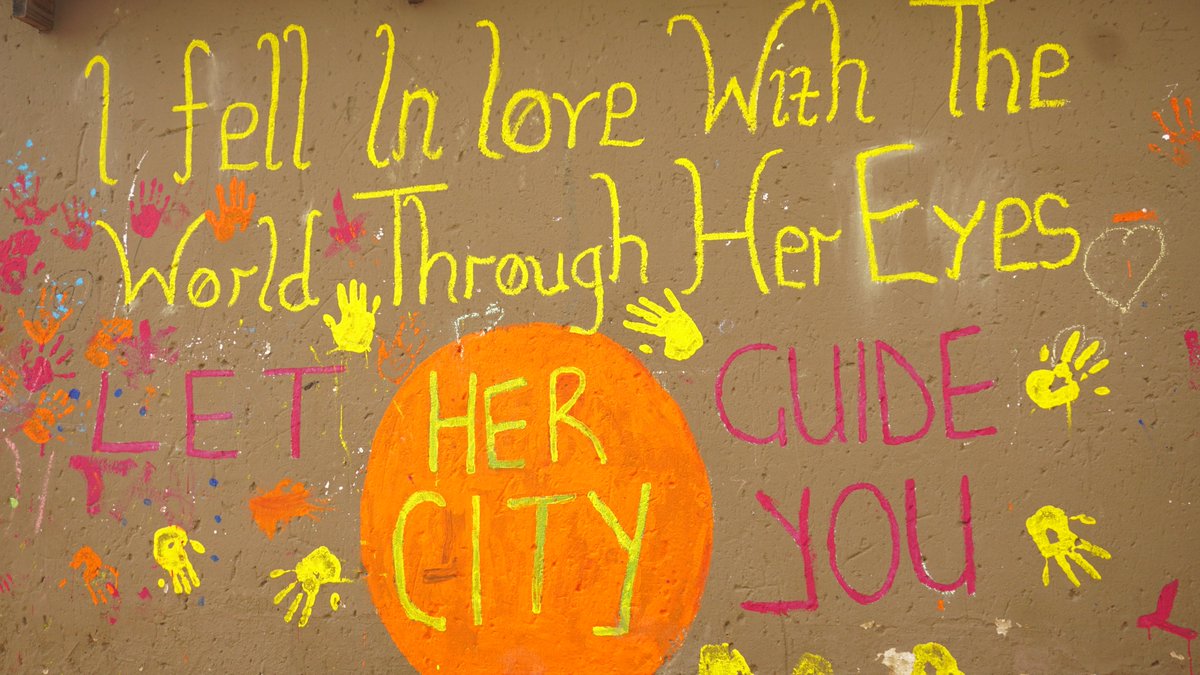 I fell In love With The
World Through Her Eyes
LET HER GUIDE
CITY YOU